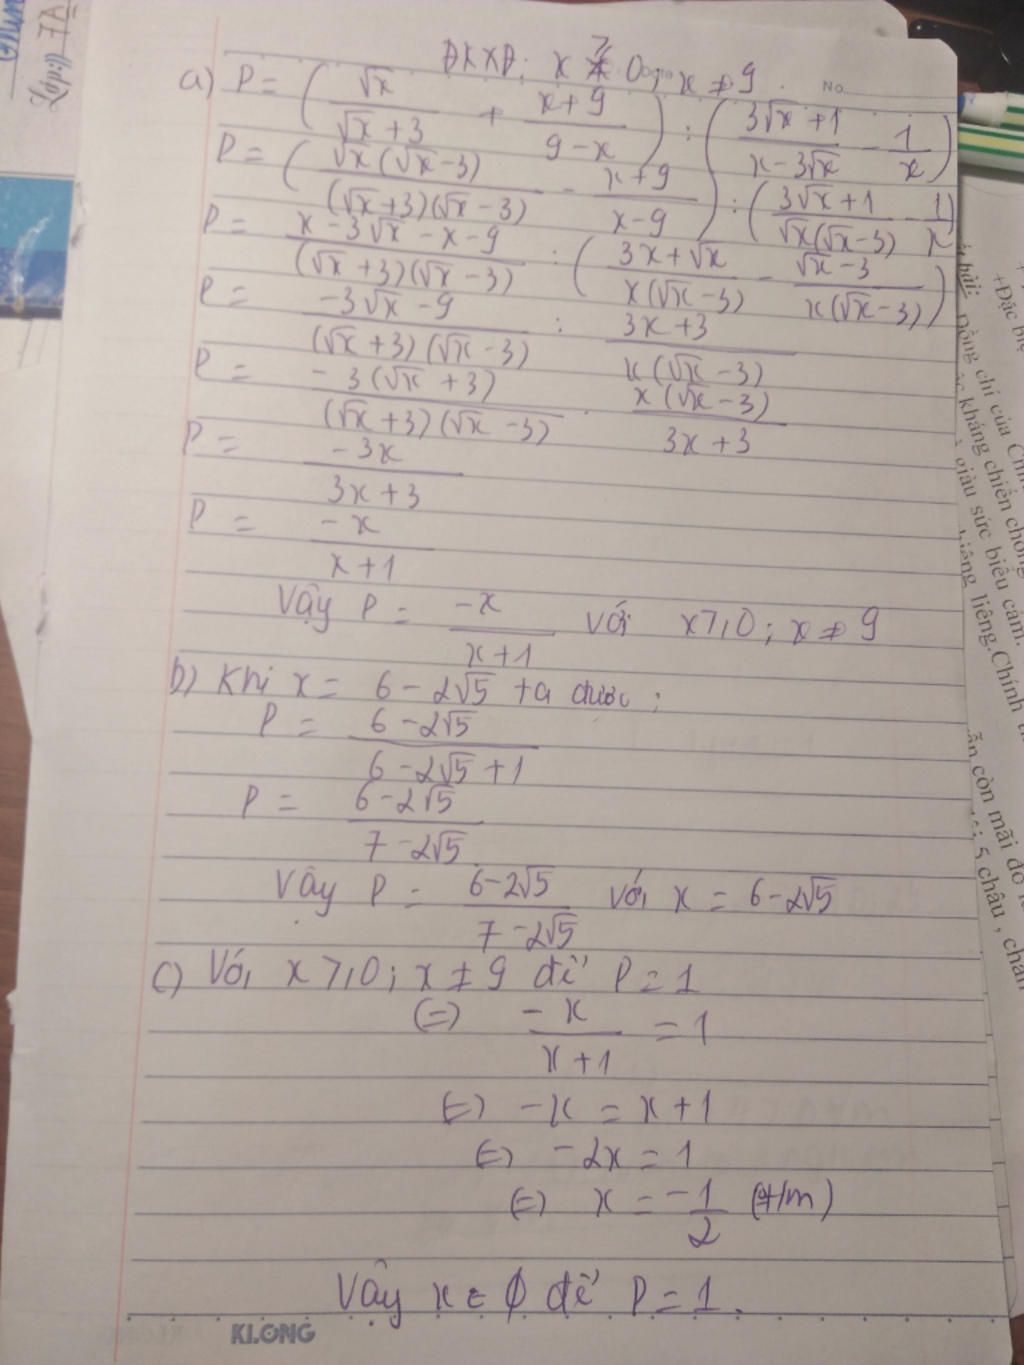 Lớp: 7A
ĐKXĐ: x ⩾ 0; x ≠ 9
No
a) P = (√x/(√x+3) + (x+9)/(9-x)) : ((3√x+1)/(x-3√x) - 1/x)
P = (√x(√x-3)/((√x+3)(√x-3)) - (x+9)/(x-9)) : ((3√x+1)/(√x(√x-3)) - 1/x)
P = (x-3√x-x-9)/((√x+3)(√x-3)) : ((3x+√x)/(x(√x-3)) - (√x-3)/(x(√x-3)))
P = (-3√x-9)/((√x+3)(√x-3)) : (3x+3)/(x(√x-3))
P = -3(√x+3)/((√x+3)(√x-3)) . x(√x-3)/(3x+3)
P = -3x/(3x+3)
P = -x/(x+1)
Vậy P = -x/(x+1) với x ⩾ 0; x ≠ 9
b) Khi x = 6-2√5 ta được:
P = (6-2√5)/(6-2√5+1)
P = (6-2√5)/(7-2√5)
Vậy P = (6-2√5)/(7-2√5) với x = 6-2√5
c) Với x ⩾ 0; x ≠ 9 để P = 1
(=) -x/(x+1) = 1
(=) -x = x+1
(=) -2x = 1
(=) x = -1/2 (≠/m)
Vậy x ∈ ∅ để P = 1.
KLONG
+Đặc biệ
bài:
đồng chí của Chín
kháng chiến chống
giàu sức biểu cảm.
liêng.Chính t
ẫn còn mãi đó
5 châu, chân